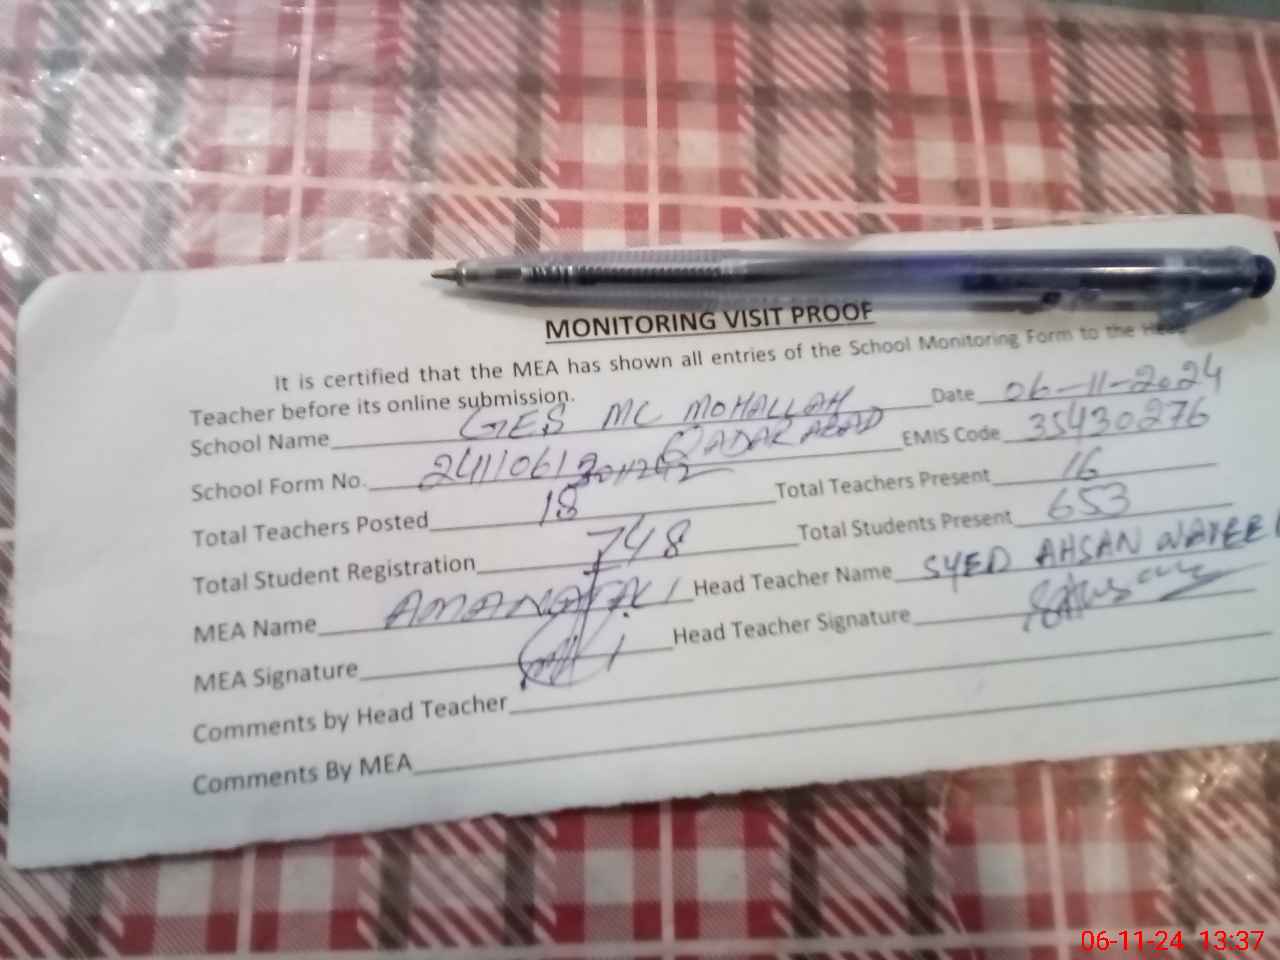 MONITORING VISIT PROOF
It is certified that the MEA has shown all entries of the School Monitoring Form to the Head
Teacher before its online submission.
School Name GES MC MOHALLAH QADAR ABAD Date 06-11-2024
School Form No. EMIS Code 35430276
Total Teachers Posted 18 Total Teachers Present 16
Total Student Registration 748 Total Students Present 653
MEA Name AMANAT ALI Head Teacher Name SYED AHSAN
MEA Signature Head Teacher Signature
Comments by Head Teacher
Comments By MEA
06-11-24 13:37